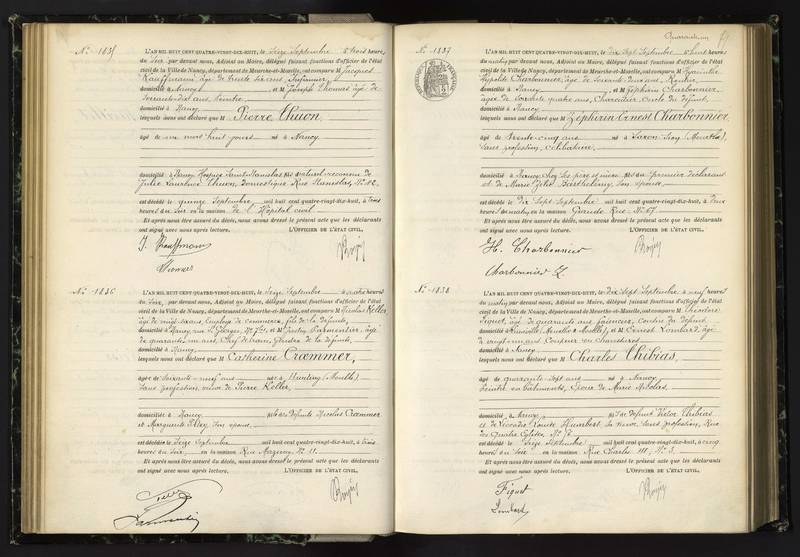 N° 1835 L'AN MIL HUIT CENT QUATRE-VINGT-DIX-HUIT, le Seize Septembre à trois heures
du Soir par devant nous, Adjoint au Maire, délégué faisant fonctions d'officier de l'état
civil de la Ville de Nancy, département de Meurthe-et-Moselle, ont comparu M Jacques
Kauffmann, âgé de trente six ans, Infirmier,
domicilié à Nancy et M Joseph Thomas âgé de
soixante-dix ans, Rentier
domicilié à Nancy
lesquels nous ont déclaré que M Pierre Thiion
âgé de un mois huit jours né à Nancy
domicilié à Nancy Hospice Saint-Stanislas fils naturel reconnu de
Julie Faustine Thiion, Domestique, Rue Stanislas, N° 82
est décédé le quinze Septembre, mil huit cent quatre-vingt-dix-huit, à trois
heures du Soir en la maison de l'Hôpital civil
Et après nous être assuré du décès, nous avons dressé le présent acte que les déclarants
ont signé avec nous après lecture. L'OFFICIER DE L'ÉTAT CIVIL,
J. Kauffmann
N° 1836 L'AN MIL HUIT CENT QUATRE-VINGT-DIX-HUIT, le Seize Septembre à quatre heures
du Soir, par devant nous, Adjoint au Maire, délégué faisant fonctions d'officier de l'état
civil de la Ville de Nancy, département de Meurthe-et-Moselle, ont comparu M Nicolas Keller
âgé de vingt-six ans, Employé de Commerce, fils de la défunte,
domicilié à Nancy, rue St Georges, et M Parmentier, âgé
de quarante un ans, Chef de train, Gendre de la défunte,
domicilié à Nancy
lesquels nous ont déclaré que M Catherine Cræmmer,
âgée de Soixante-neuf ans née à Hunting (Moselle)
sans profession, veuve de Pierre Keller,
domiciliée à Nancy fille de défunts Nicolas Cræmmer
et Marguerite Filley, son épouse,
est décédée le Seize Septembre mil huit cent quatre-vingt-dix-huit, à trois
heures du Soir, en la maison Rue Mazagran N° 11.
Et après nous être assuré du décès, nous avons dressé le présent acte que les déclarants
ont signé avec nous après lecture. L'OFFICIER DE L'ÉTAT CIVIL,
Parmentier
N° 1837 L'AN MIL HUIT CENT QUATRE-VINGT-DIX-HUIT, le Dix Sept Septembre à huit heures
du matin, par devant nous, Adjoint au Maire, délégué faisant fonctions d'officier de l'état
civil de la Ville de Nancy, département de Meurthe-et-Moselle, ont comparu M Hyacinthe
Hypolite Charbonnier, âgé de soixante ans, Rentier
domicilié à Nancy et M Zéphirin Charbonnier
âgé de soixante quatre ans, Charcutier oncle du défunt,
domicilié à Nancy
lesquels nous ont déclaré que M Zéphirin Ernest Charbonnier
âgé de trente-cinq ans né à Saxon-Sion (Meurthe)
sans profession, célibataire,
domicilié à Nancy chez ses père et mère fils du premier déclarant
et de Marie Zélie Barthélemy, son épouse
est décédé le Dix Sept Septembre mil huit cent quatre-vingt-dix-huit, à Deux
heures du matin en la maison Grande Rue N° 67
Et après nous être assuré du décès, nous avons dressé le présent acte que les déclarants
ont signé avec nous après lecture. L'OFFICIER DE L'ÉTAT CIVIL,
H. Charbonnier
Charbonnier Z.
N° 1838 L'AN MIL HUIT CENT QUATRE-VINGT-DIX-HUIT, le Dix Sept Septembre à neuf heures
du matin par devant nous, Adjoint au Maire, délégué faisant fonctions d'officier de l'état
civil de la Ville de Nancy, département de Meurthe-et-Moselle, ont comparu M Théodore
Figuet, âgé de quarante ans faïencier, cousin du défunt,
domicilié à Lunéville (Meurthe & Moselle), et M Ernest Lombard, âgé
de vingt-un ans Coupeur en chaussures
domicilié à Nancy
lesquels nous ont déclaré que M Charles Thibias,
âgé de quarante sept ans né à Nancy
Peintre en bâtiments, Époux de Marie Nicolas.
domicilié à Nancy fils de défunt Victor Thibias
et de Humbert sa veuve sans profession, Rue
des Quatre Églises, N° 76
est décédé le Seize Septembre mil huit cent quatre-vingt-dix-huit, à cinq
heures du Soir en la maison Rue Charles III, N° 3.
Et après nous être assuré du décès, nous avons dressé le présent acte que les déclarants
ont signé avec nous après lecture. L'OFFICIER DE L'ÉTAT CIVIL,
Figuet
Lombard